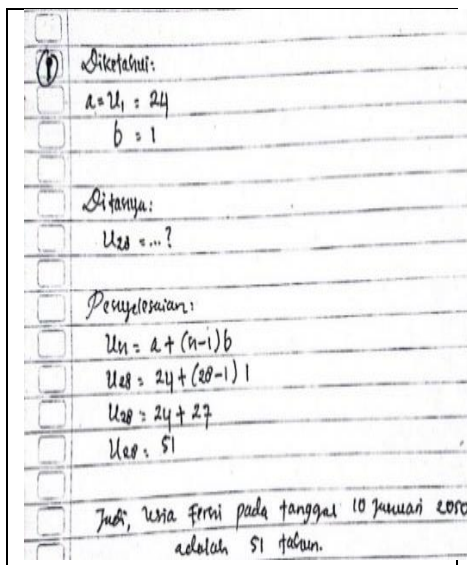 1
Diketahui:
a = U1 = 24
b = 1
Ditanya:
U28 = ...?
Penyelesaian:
Un = a + (n-1)b
U28 = 24 + (28-1) 1
U28 = 24 + 27
U28 = 51
Jadi, usia Fersi pada tanggal 10 Januari 2050
adalah 51 tahun.